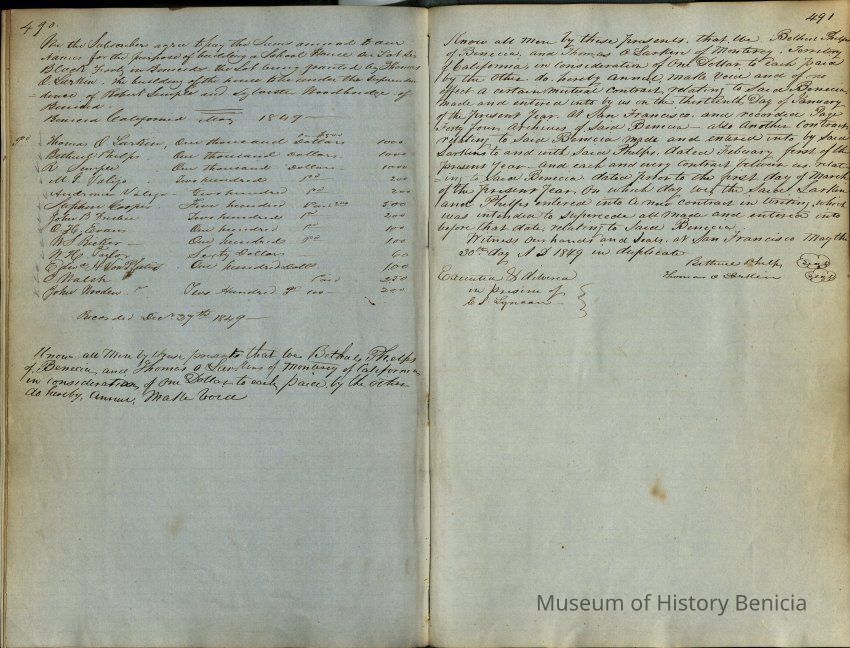 490.
We the Subscribers agree to pay the Sums annexed to our
Names for the purpose of building a School House on Lot Six
Block Forty in Benicia the Lot being granted by Thomas
O. Larkin. The building of the house to be under the Superin-
-dence of Robert Semple and Sylvester Woodbridge of
Benicia.
Benicia California May 1849
Thomas O Larkin, One thousand Dollars 1000
Bethuel Phelps One thousand Dollars 1000
R Semple One thousand Dollars 1000
M. G. Vallejo Two hundred Do 200
Andrew Two hundred Do 200
Stephen Cooper Five hundred 500
John B Frisbie Two hundred Do 200
O. H. Evans One hundred Do 100
W S One hundred Do 100
W. H. Taylor Sixty Dollars 60
One hundred dolls 100
S Walsh Paid 250
John Wooden Two Hundred 200
Recorded Decr 27th 1849
Know all Men by these presents that We Bethuel Phelps
of Benicia and Thomas O Larkin of Monterey of California
in consideration of One Dollar to each paid by the other
do hereby, annul, Make Void
491
Know all Men by these presents, that We Bethuel Phelps
of Benicia and Thomas O Larkin of Monterey, Territory
of California in consideration of One Dollar to each paid
by the other do hereby annul, make void and of no
effect a certain mutual contract, relating to Said Benicia
made and entered into by us on the thirteenth Day of January
of the present Year, at San Francisco and recorded Page
Forty four, Archives of Said Benicia - also another contract,
relating to Said Benicia made and entered into by Said
Larkin to and with Said Phelps, dated February first of the
present Year - And each and every contract between us relat-
ing to Said Benicia dated prior to the first day of March
of the present Year, on which day we, the Said Larkin
and Phelps entered into a new contract in writing, which
was intended to supercede all made and entered into
before that date, relating to Said Benicia
Witness our hands and Seals, at San Francisco May the
30th day A D 1849 in duplicate
Bethuel Phelps
Thomas O Larkin
Executed &
in presence of
C. L.
Museum of History Benicia